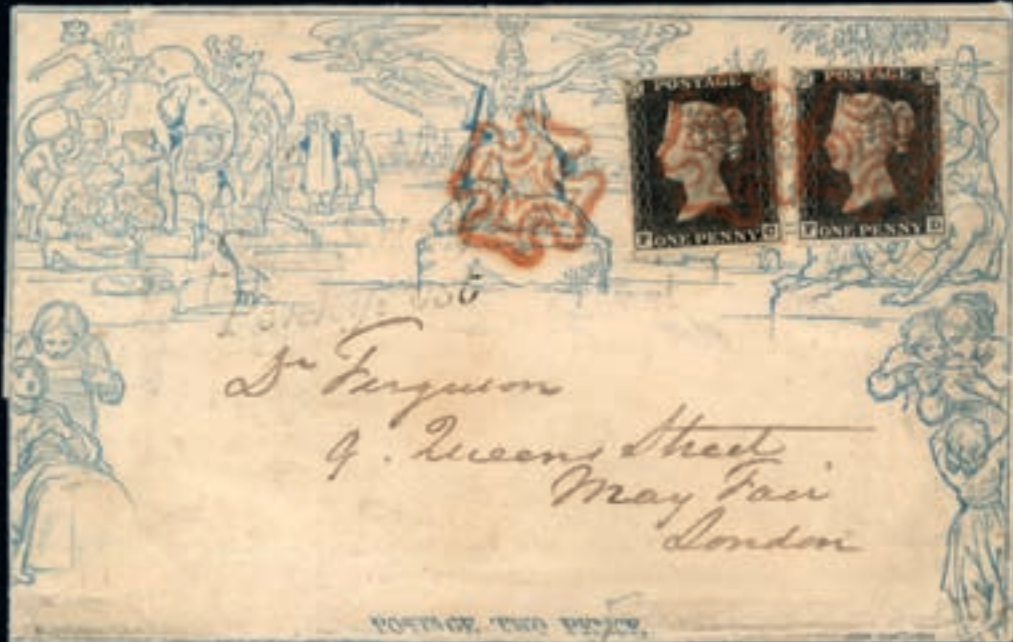 POSTAGE
F ONE PENNY C
POSTAGE
F ONE PENNY D
Dr Ferguson
9. Queens Street
May Fair
London
POSTAGE TWO PENCE.